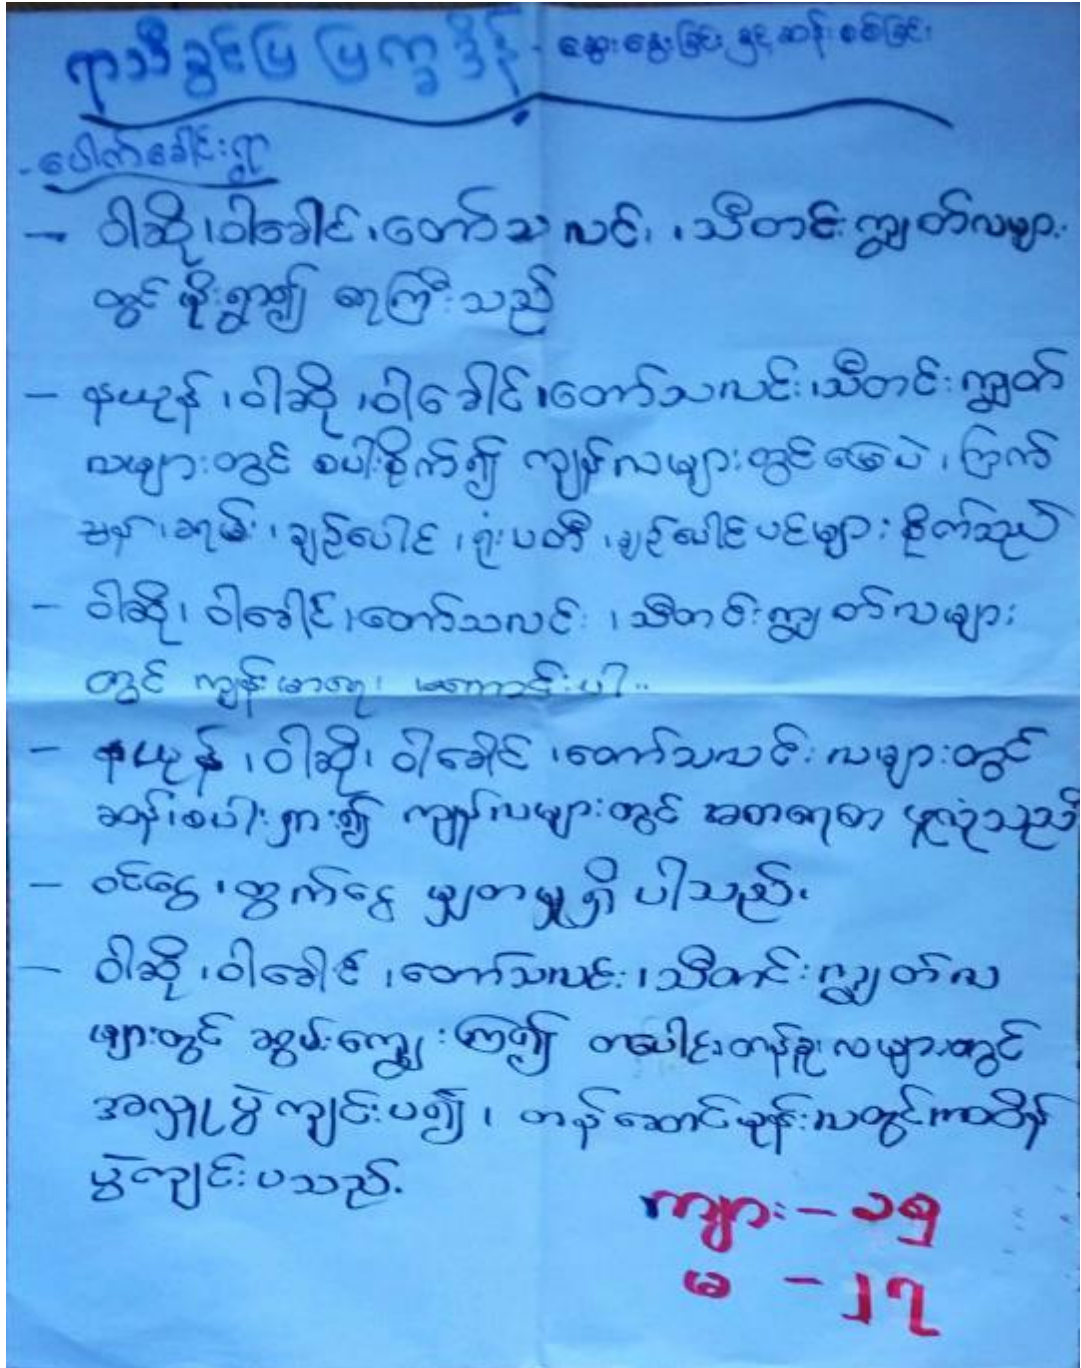 ရာသီခွင်ပြ ပြက္ခဒိန် - ဆွေးနွေးခြင်း နှင့် ဆန်းစစ်ခြင်း
- ပေါက်ခေါင်းရွာ
- ဝါဆို၊ ဝါခေါင်၊ တော်သလင်း၊ သီတင်းကျွတ်လများ
တွင် မိုးရွာ၍ ရေကြီးသည်
- နယုန်၊ ဝါဆို၊ ဝါခေါင်၊ တော်သလင်း၊ သီတင်းကျွတ်
လများတွင် စပါးစိုက်၍ ကျန်လများတွင် မြေပဲ၊ ကြက်
သွန်၊ ခရမ်း၊ ချဉ်ပေါင်၊ ရုံးပတီ၊ ချဉ်ပေါင်ပင်များ စိုက်သည်
- ဝါဆို၊ ဝါခေါင်၊ တော်သလင်း၊ သီတင်းကျွတ်လများ
တွင် ကျန်းမာရေး မကောင်းပါ..
- နယုန်၊ ဝါဆို၊ ဝါခေါင်၊ တော်သလင်းလများတွင်
ဆန်စပါးရှား၍ ကျန်လများတွင် အစားရေစာ ဖူလုံသည်
- ဝင်ငွေ၊ ထွက်ငွေ မျှတမှုရှိပါသည်.
- ဝါဆို၊ ဝါခေါင်၊ တော်သလင်း၊ သီတင်းကျွတ်လ
များတွင် ဆွမ်းကျွေးကြ၍ တပေါင်း တန်ခူးလများတွင်
အလှူပွဲကျင်းပ၍၊ တန်ဆောင်မုန်းလတွင် ကထိန်
ပွဲကျင်းပသည်.
ကျား - ၁၅
မ - ၂၇